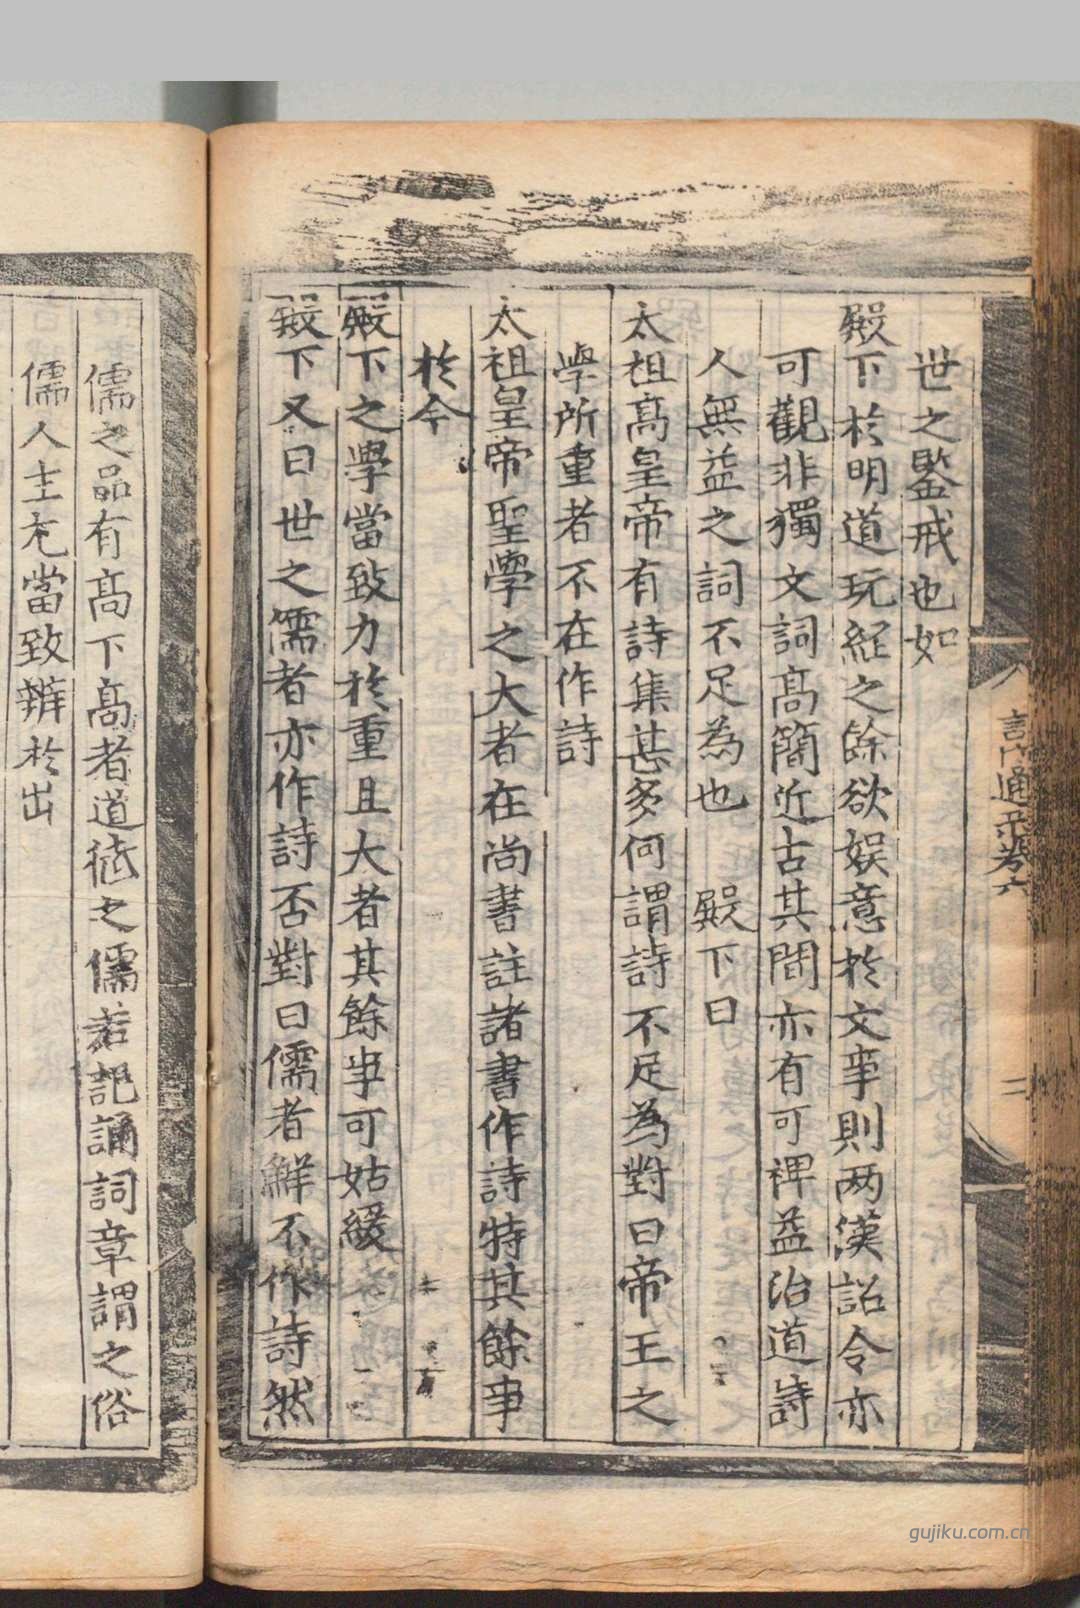 世之鍳戒也如
殿下於明道玩経之餘欲娱意於文亊則两漢詔令亦
可觀非獨文詞髙簡近古其間亦有可裨益治道詩
人無益之詞不足為也 殿下曰
太祖髙皇帝有詩集甚多何謂詩不足為對曰帝王之
學所重者不在作詩
太祖皇帝聖學之大者在尚書註諸書作詩特其餘亊
於今
殿下之學當致力於重且大者其餘亊可姑緩
殿下又曰世之儒者亦作詩否對曰儒者鮮不作詩然
儒之品有髙下髙者道徳之儒若記誦詞章謂之俗
儒人主尤當致辨於出
通 卷六
二
gujiku.com.cn